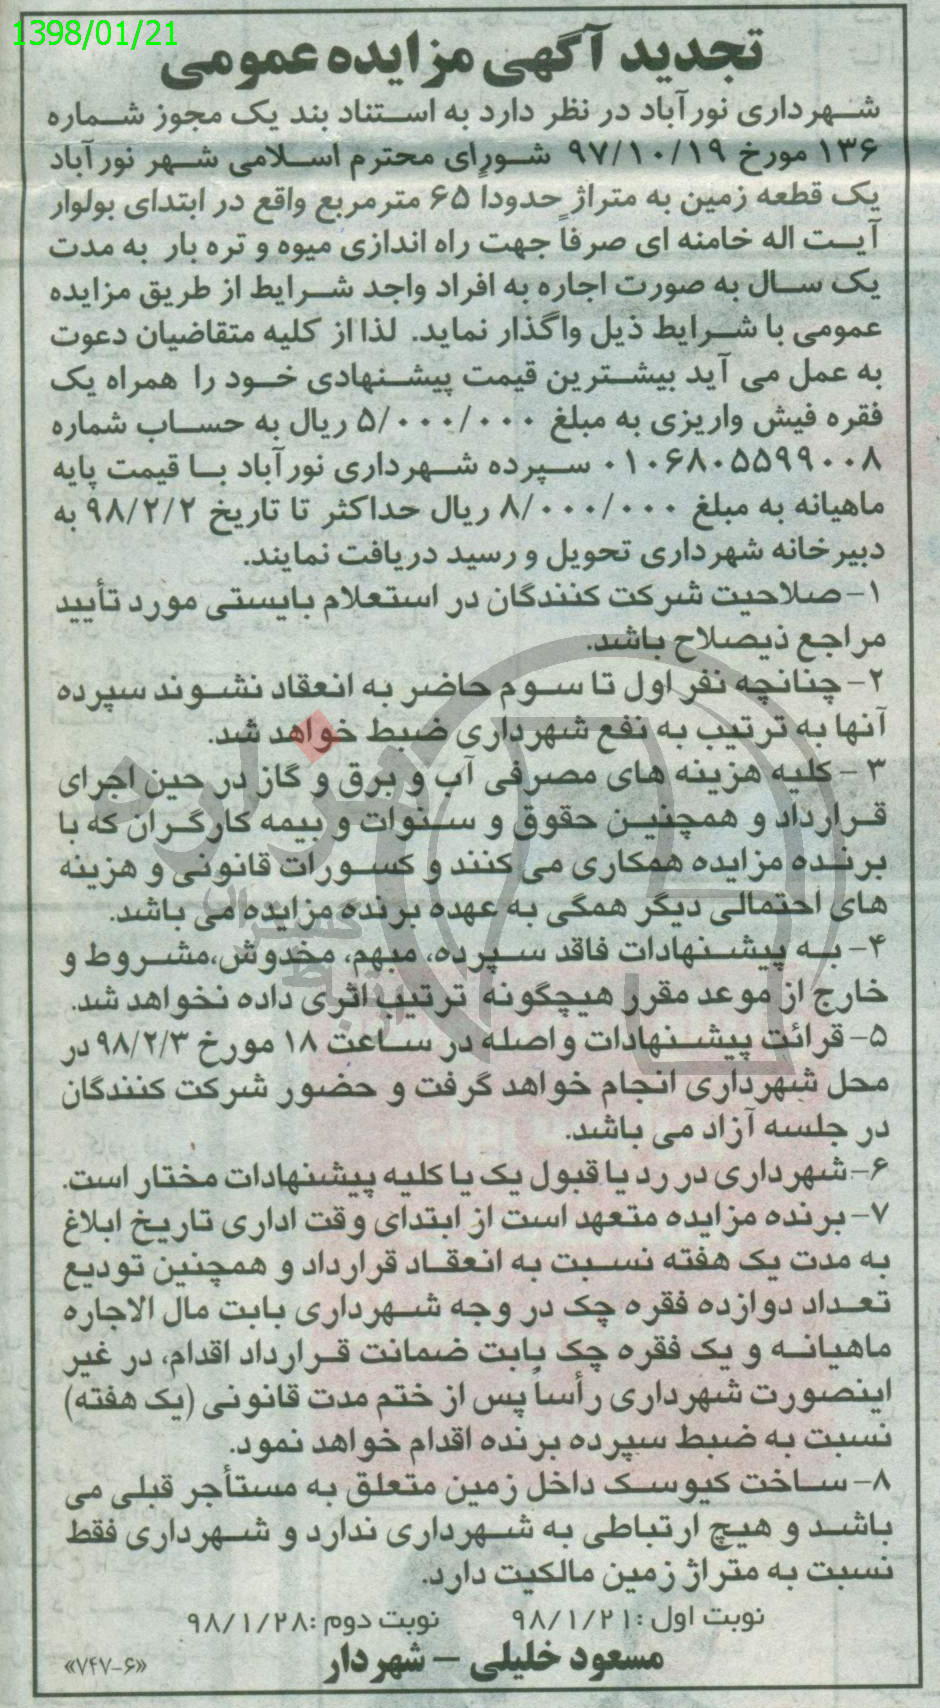 1398/01/21
تجدید آگهی مزایده عمومی
شهرداری نورآباد در نظر دارد به استناد بند یک مجوز شماره
۱۳۶ مورخ ۹۷/۱۰/۱۹ شورای محترم اسلامی شهر نورآباد
یک قطعه زمین به متراژ حدوداً ۶۵ مترمربع واقع در ابتدای بولوار
آیت اله خامنه ای صرفاً جهت راه اندازی میوه و تره بار به مدت
یک سال به صورت اجاره به افراد واجد شرایط از طریق مزایده
عمومی با شرایط ذیل واگذار نماید. لذا از کلیه متقاضیان دعوت
به عمل می آید بیشترین قیمت پیشنهادی خود را همراه یک
فقره فیش واریزی به مبلغ ۵/۰۰۰/۰۰۰ ریال به حساب شماره
۰۱۰۶۸۰۵۵۹۹۰۰۸ سپرده شهرداری نورآباد با قیمت پایه
ماهیانه به مبلغ ۸/۰۰۰/۰۰۰ ریال حداکثر تا تاریخ ۹۸/۲/۲ به
دبیرخانه شهرداری تحویل و رسید دریافت نمایند.
۱- صلاحیت شرکت کنندگان در استعلام بایستی مورد تأیید
مراجع ذیصلاح باشد.
۲- چنانچه نفر اول تا سوم حاضر به انعقاد نشوند سپرده
آنها به ترتیب به نفع شهرداری ضبط خواهد شد.
۳- کلیه هزینه های مصرفی آب و برق و گاز در حین اجرای
قرارداد و همچنین حقوق و سنوات و بیمه کارگران که با
برنده مزایده همکاری می کنند و کسورات قانونی و هزینه
های احتمالی دیگر همگی به عهده برنده مزایده می باشد.
۴- به پیشنهادات فاقد سپرده، مبهم، مخدوش،مشروط و
خارج از موعد مقرر هیچگونه ترتیب اثری داده نخواهد شد.
۵- قرائت پیشنهادات واصله در ساعت ۱۸ مورخ ۹۸/۲/۳ در
محل شهرداری انجام خواهد گرفت و حضور شرکت کنندگان
در جلسه آزاد می باشد.
۶- شهرداری در رد یا قبول یک یا کلیه پیشنهادات مختار است.
۷- برنده مزایده متعهد است از ابتدای وقت اداری تاریخ ابلاغ
به مدت یک هفته نسبت به انعقاد قرارداد و همچنین تودیع
تعداد دوازده فقره چک در وجه شهرداری بابت مال الاجاره
ماهیانه و یک فقره چک بابت ضمانت قرارداد اقدام، در غیر
اینصورت شهرداری رأساً پس از ختم مدت قانونی (یک هفته)
نسبت به ضبط سپرده برنده اقدام خواهد نمود.
۸- ساخت کیوسک داخل زمین متعلق به مستأجر قبلی می
باشد و هیچ ارتباطی به شهرداری ندارد و شهرداری فقط
نسبت به متراژ زمین مالکیت دارد.
نوبت اول :۹۸/۱/۲۱ نوبت دوم :۹۸/۱/۲۸
مسعود خلیلی – شهردار
«۷۴۷-۶»